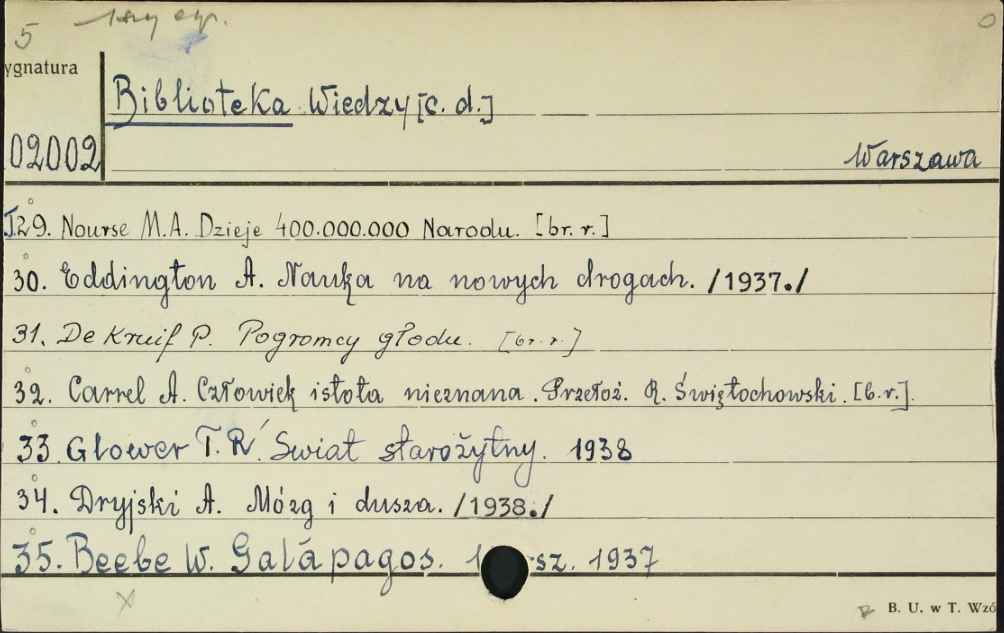 5
ygnatura
Biblioteka Wiedzy [c. d.]
02002
Warszawa
T.29. Nourse M.A. Dzieje 400.000.000 Narodu. [br. r.]
30. Eddington A. Nauka na nowych drogach. /1937./
31. De Kruif P. Pogromcy głodu. [br. r.]
32. Carrel A. Człowiek istota nieznana. Przełoż. R. Świętochowski. [b.r.].
33. Glower T. R. Świat starożytny. 1938
34. Dryjski A. Mózg i dusza. /1938./
35. Beebe W. Galápagos. sz. 1937
B. U. w T. Wzó